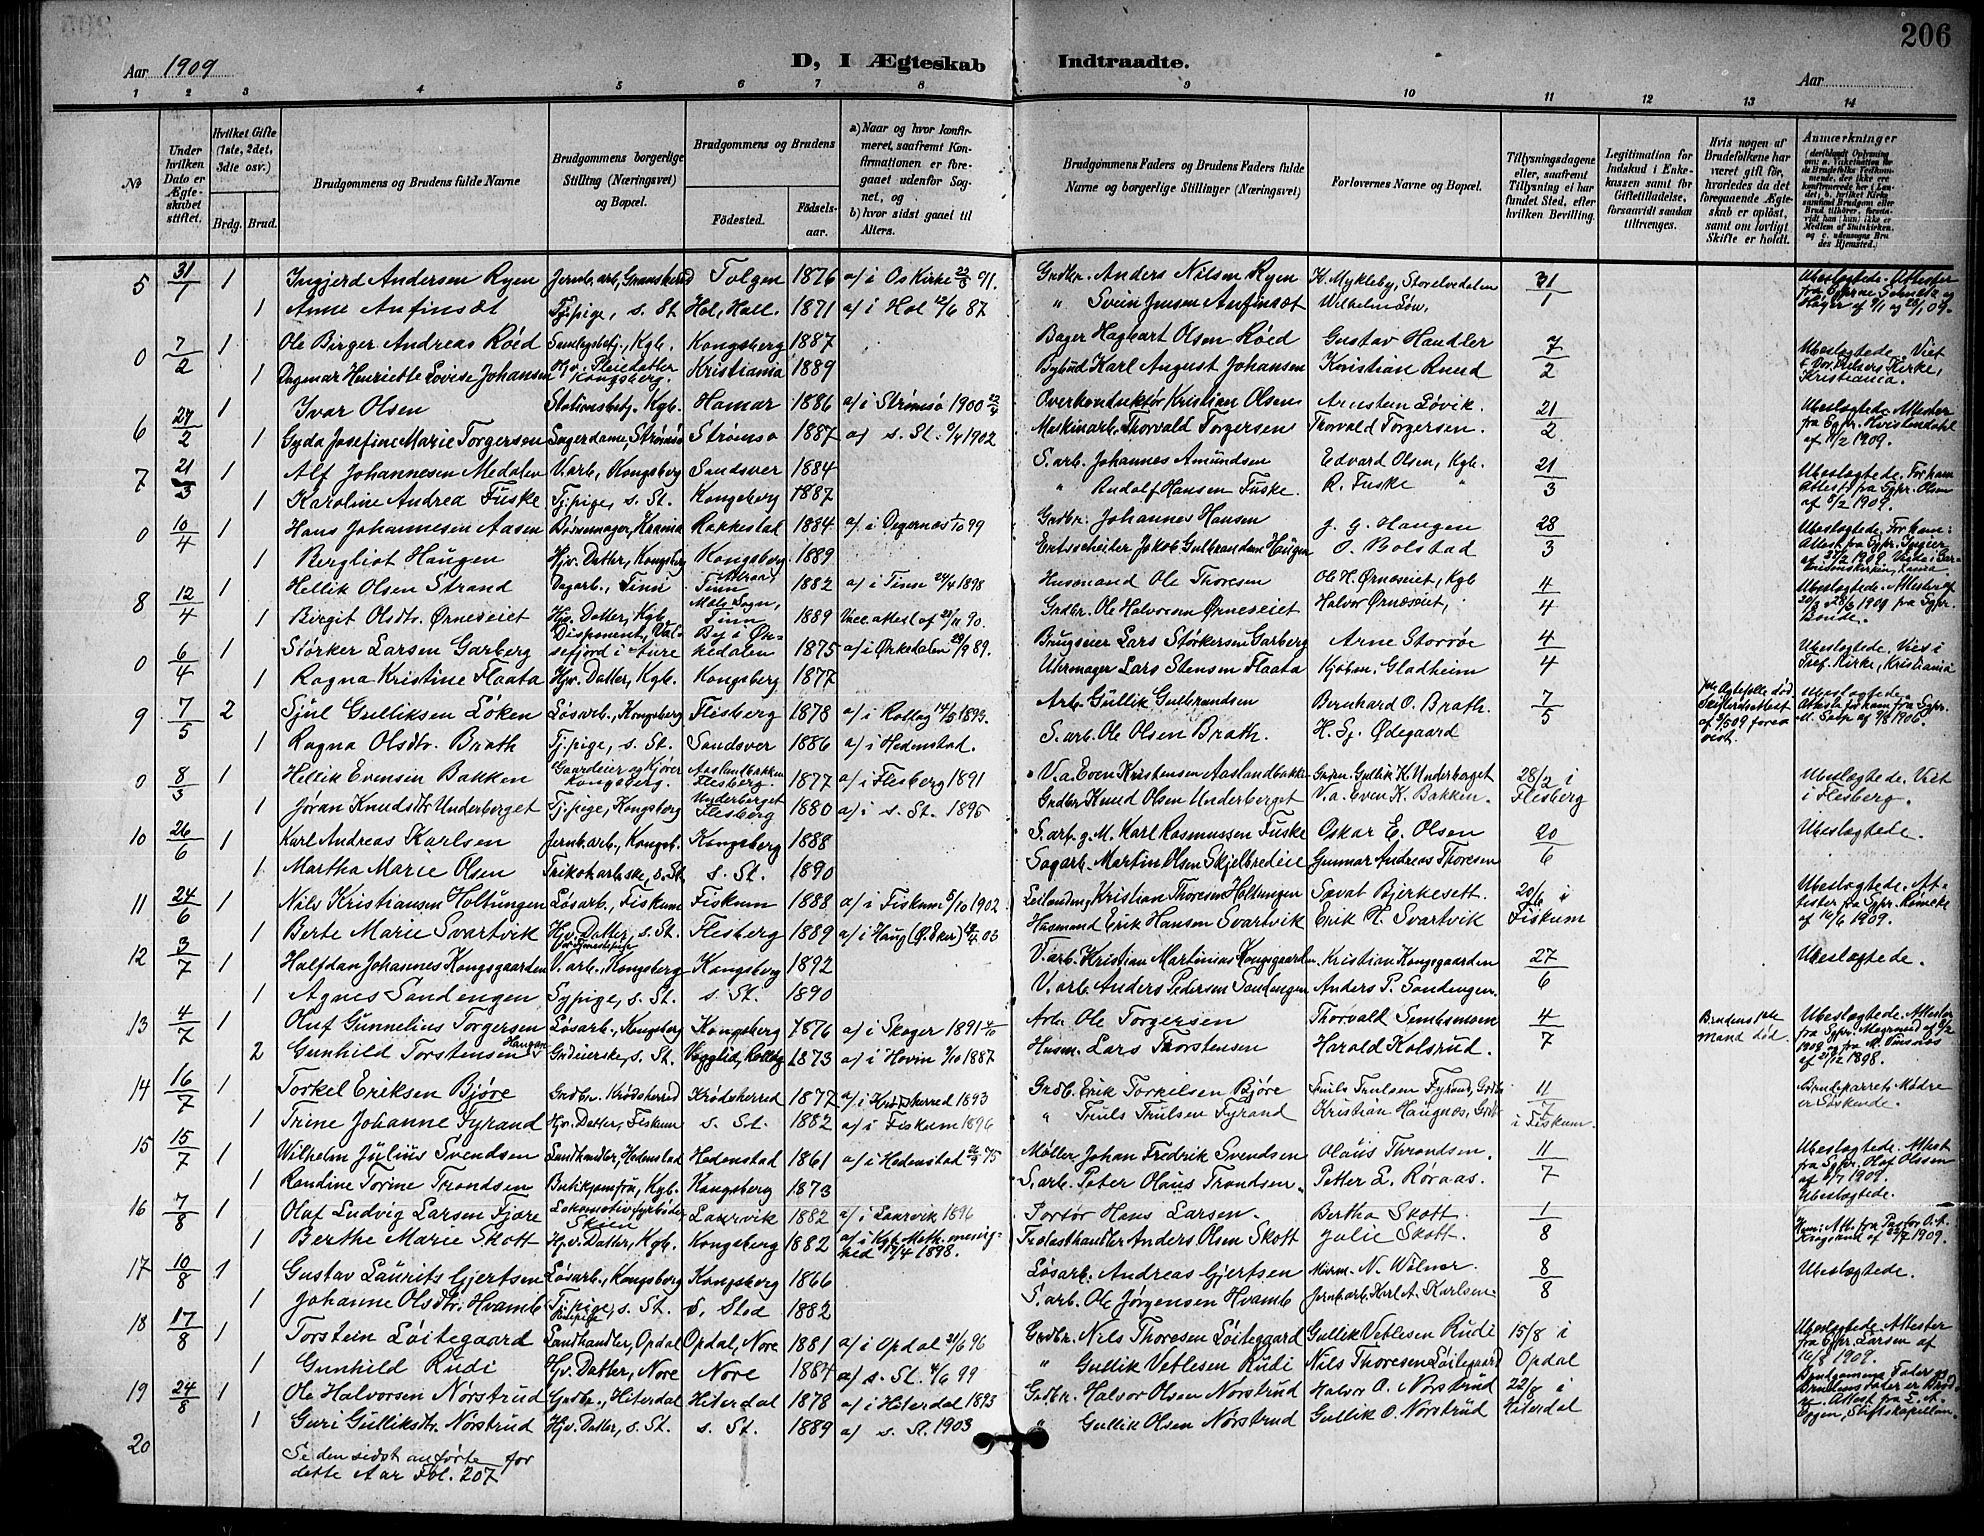 206
Aar 1909
D, I Ægteskab Indtraadte.
Aar
1 2 3 4 5 6 7 8 9 10 11 12 13 14
№
Under hvilken Dato er Ægteskabet stiftet.
Hvilket Gifte (1ste, 2det, 3dte osv.)
Brdg. Brud.
Brudgommens og Brudens fulde Navne
Brudgommens borgerlige Stilling (Næringsvei) og Bopæl.
Brudgommens og Brudens
Fødested.
Fødselsaar.
a) Naar og hvor konfirmeret, saafremt Konfirmationen er foregaaet udenfor Sognet, og
b) hvor sidst gaaet til Alters.
Brudgommens Faders og Brudens Faders fulde Navne og borgerlige Stillinger (Næringsvei)
Forlovernes Navne og Bopæl.
Tillysningsdagene eller, saafremt Tillysning ei har fundet Sted, efter hvilken Bevilling.
Legitimation for Indskud i Enkekassen samt for Giftetilladelse, forsaavidt saadan tiltrænges.
Hvis nogen af Brudefolkene har været gift før, hvorledes da det foregaaende Ægteskab er opløst, samt om lovligt Skifte er holdt.
Anmærkninger
5 31/1 1 Ingjerd Andersen Ryen Jernb.arb, Gransherad Tolgen 1876 a) i Os Kirke Grdbr. Anders Nilsen Ryen K. Mykleby, Storelvedalen 31/1
1 Anne Aufinsæt Tj.pige, s. St. Hol, Hall. 1871 a) i Hol 12/6 87 " Svein Jensen Aufinsæt Wilhelmsøn,
0 7/2 1 Ole Birger Andreas Röed Kgb. Kongsberg 1887 Bager Hagbart Olsen Röed Gustav Handler 7/2 Ubeslægtede. Viet i Vor Frelsers Kirke, Kristiania.
1 Dagmar Henriette Lovise Johansen Hjv. Pleiedatter Kongsberg. Kristiania 1889 Bybud Karl August Johansen Kristian Ruud
6 27/2 1 Ivar Olsen Stationsbetj. Kgb. Hamar 1886 a) i Strømsø 1900 Overkonduktør Kristian Olsen Arnstein Løvik. 21/2 Ubeslægtede. Attester fra Sgpr. Kristendahl af 11/2 1909.
1 Gyda Josefine Marie Torgersen Strømsø Strømsø 1887 a) s. St. 1902 Maskinarb. Thorvald Torgersen Thorvald Torgersen.
7 21/3 1 Alf Johannesen Medalen V.arb., Kongsberg Sandsver 1884 S.arb. Johannes Amundsen Edvard Olsen, Kgb. 21/3 Ubeslægtede. For ham Attest fra Sgpr. Olsen af 8/2 1909.
1 Karoline Andrea Fuske Tj.pige, s. St. Kongsberg 1887 " Rudolf Hansen Fuske. R. Fuske "
0 10/4 1 Hans Johannesen Aasen Kr.ania Rakkestad 1884 a) i Degernæs 1/10 99 Grdbr. Johannes Hansen J. G. Haugen 28/3
1 Bergliot Haugen Hjv. Datter, Kongsberg Kongsberg 1889 Ertsscheider Jakob Gulbrandsen Haugen O. Bolstad
8 12/4 1 Hellik Olsen Strand Dagarb., Tinn Tinn 1882 a) i Tinn 24/4 1898 Husmand Ole Thoresen Ole H. Ørneseiet, Kgb 4/4
1 Birgit Olsdtr. Ørneseiet Hjv. Datter, Kgb. Tinn 1889 Vacc. attest af 23/11 90. Grdbr. Ole Halvorsen Ørneseiet Halvor Ørneseiet,
0 6/4 1 Størker Larsen Garberg Disponent, Valsøfjord i Aure Bej i Ørkedalen 1875 a) i Ørkedalen 29/9 89. Brugseier Lars Størkersen Garberg Arne Storröe 4/4 Ubeslægtede. Viet i Kirke, Kristiania
1 Ragna Kristine Flaata Hjv. Datter, Kgb. Kongsberg 1877 Uhrmager Lars Stensen Flaata Kjøbm. Gladheim
9 7/5 2 Sjul Gulliksen Løken Løsarb., Kongsberg Flesberg 1878 a) i Rollag 14/5 1893. Arb. Gullik Gulbrandsen Bernhard O. Brath. 7/5
1 Ragna Olsdtr. Brath Tj.pige, s. St. Sandsver 1886 a) i Hedenstad. S.arb. Ole Olsen Brath. H. Sj. Ødegaard
0 8/3 1 Hellik Evensen Bakken Gaardeier og Kjører Kongsberg. Aaslandbakken Flesberg. 1877 a) i Flesberg 1891 V.a. Even Kristensen Aaslandbakke Gullik K. Underberget 28/2 i Flesberg Ubeslægtede. Viet i Flesberg.
1 Jøran Knudsdtr Underberget Tj.pige, Kongsberg Underberget Flesberg 1880 a) i s. St. 1895 Grdbr Knud Olsen Underberget V.a. Even K. Bakken.
10 26/6 1 Karl Andreas Karlsen Jernb.arb., Kongsb. Kongsberg 1888 S.arb. g.M. Karl Rasmussen Fuske Oskar E. Olsen 20/6 Ubeslægtede.
1 Martha Marie Olsen Trikotarbske, s. St. s. St. 1890 Sagarb. Martin Olsen Skjelbredeie Gunnar Andreas Thoresen
11 24/6 1 Nils Kristiansen Holtungen Løsarb., Fiskum Fiskum 1888 a) i Fiskum 5/10 1902 Leilænding Kristian Thoresen Holtungen Savat Bjerkesett. 20/6 i Fiskum Ubeslægtede. Attester fra Sgpr. Reincke af 14/6 1909.
1 Berte Marie Svartvik Hjv. Datter, s. St. Flesberg 1889 a) i Haug (Ø. Eker) 03 Husmand Erik Hansen Svartvik Erik H. Svartvik
12 3/7 1 Halfdan Johannes Kongsgaarden V.arb. Kongsberg Kongsberg 1892 V.arb. Kristian Martinius Kongsgaarden. Kristian Kongsgaarden 27/6 Ubeslægtede.
1 Agnes Sandengen Sypige, s. St. s. St. 1890 V.arb. Anders Pedersen Sandengen Anders P. Sandengen.
13 4/7 1 Oluf Gunnelius Torgersen Løsarb., Kongsberg Kongsberg 1876 a) i Skoger 1891 Arb. Ole Torgersen Thorvald Sembsmoen 4/7 Brudens 1ste Mand død.
2 Gunhild Torstensen Haugan Grdeierske, s. St. Veggli, Rollag 1873 a) i Hovin 1887 Husm. Lars Thorstensen Harald Kolsrud.
14 16/7 1 Torkel Eriksen Bjøre Grdbr. Krødsherred Krødsherred 1877 a) i Krødsherred 1893 Grdb. Erik Torkilsen Bjøre Truls Trulsen Fyrand, Grdbr 11/7 i Fiskum. Brudeparrets Mødre er Søskende.
1 Trine Johanne Fyrand Hjv. Datter, Fiskum s. St. 1882 a) i Fiskum 1896 " Truls Trulsen Fyrand Kristian Haugnæs, Grdbr
15 15/7 1 Wilhelm Julius Svendsen Landhandler, Hedenstad Hedenstad 1861 a) i Hedenstad 75 Møller Johan Fredrik Svendsen Olaus Throndsen. 11/7 Ubeslægtede. Attest fra Sgpr. Olaf Olssen af 8/7 1909.
1 Randine Torine Trondsen Butikjomfru, Kgb. Kongsberg 1873 S.arb. Peter Olaus Trondsen. Petter L. Røraas.
16 7/8 1 Olaf Ludvig Larsen Fjære Lokomotivfyrbøder, Skien Laurvik 1882 a) i Laurvik 1896 Portør Hans Larsen. Bertha Skott. 1/8 Ubeslægtede.
1 Berthe Marie Skott Hjv. Datter, Kgb. Kongsberg 1882 a) i Kgb. Meth. menighed 17/4 1898. Trælasthandler Anders Olsen Skott Julie Skott.
17 10/8 1 Gustav Laurits Gjertsen Løsarb., Kongsberg Kongsberg 1866 Løsarb. Andreas Gjertsen Murm. N. Wølner. 8/8 Ubeslægtede.
1 Johanne Olsdtr. Hvamb Tj.pige, s. St. s. Sted 1882 S.arb. Ole Jørgensen Hvamb Jernb.arb. Karl A. Karlsen.
18 17/8 1 Torstein Löitegaard Landhandler, Opdal Opdal, Nore 1881 a) i Opdal 21/6 96 Grdbr. Nils Thoresen Löitegaard Gullik Vetlesen Rudi 15/8 i Opdal Ubeslægtede. Attester fra Sgpr. Larsen af 16/8 1909.
1 Gunhild Rudi Hjv. Datter, Nore Nore 1884 a) s. St. 4/6 99 " Gullik Vetlesen Rudi Nils Thoresen Löitegaard
19 24/8 1 Ole Halvorsen Nørstrud Grdbr., Hiterdal Hiterdal 1878 a) i Hiterdal 1893 Grdbr. Halvor Olsen Nørstrud Halvor O. Nørstrud 22/8 i Hiterdal
1 Guri Gulliksdtr. Nørstrud Hjv. Datter, s. St. s. St. 1889 a) s. St. 1903 " Gullik Olsen Nørstrud Gullik O. Nørstrud
20 Se den sidst anførte for dette Aar Fol. 207